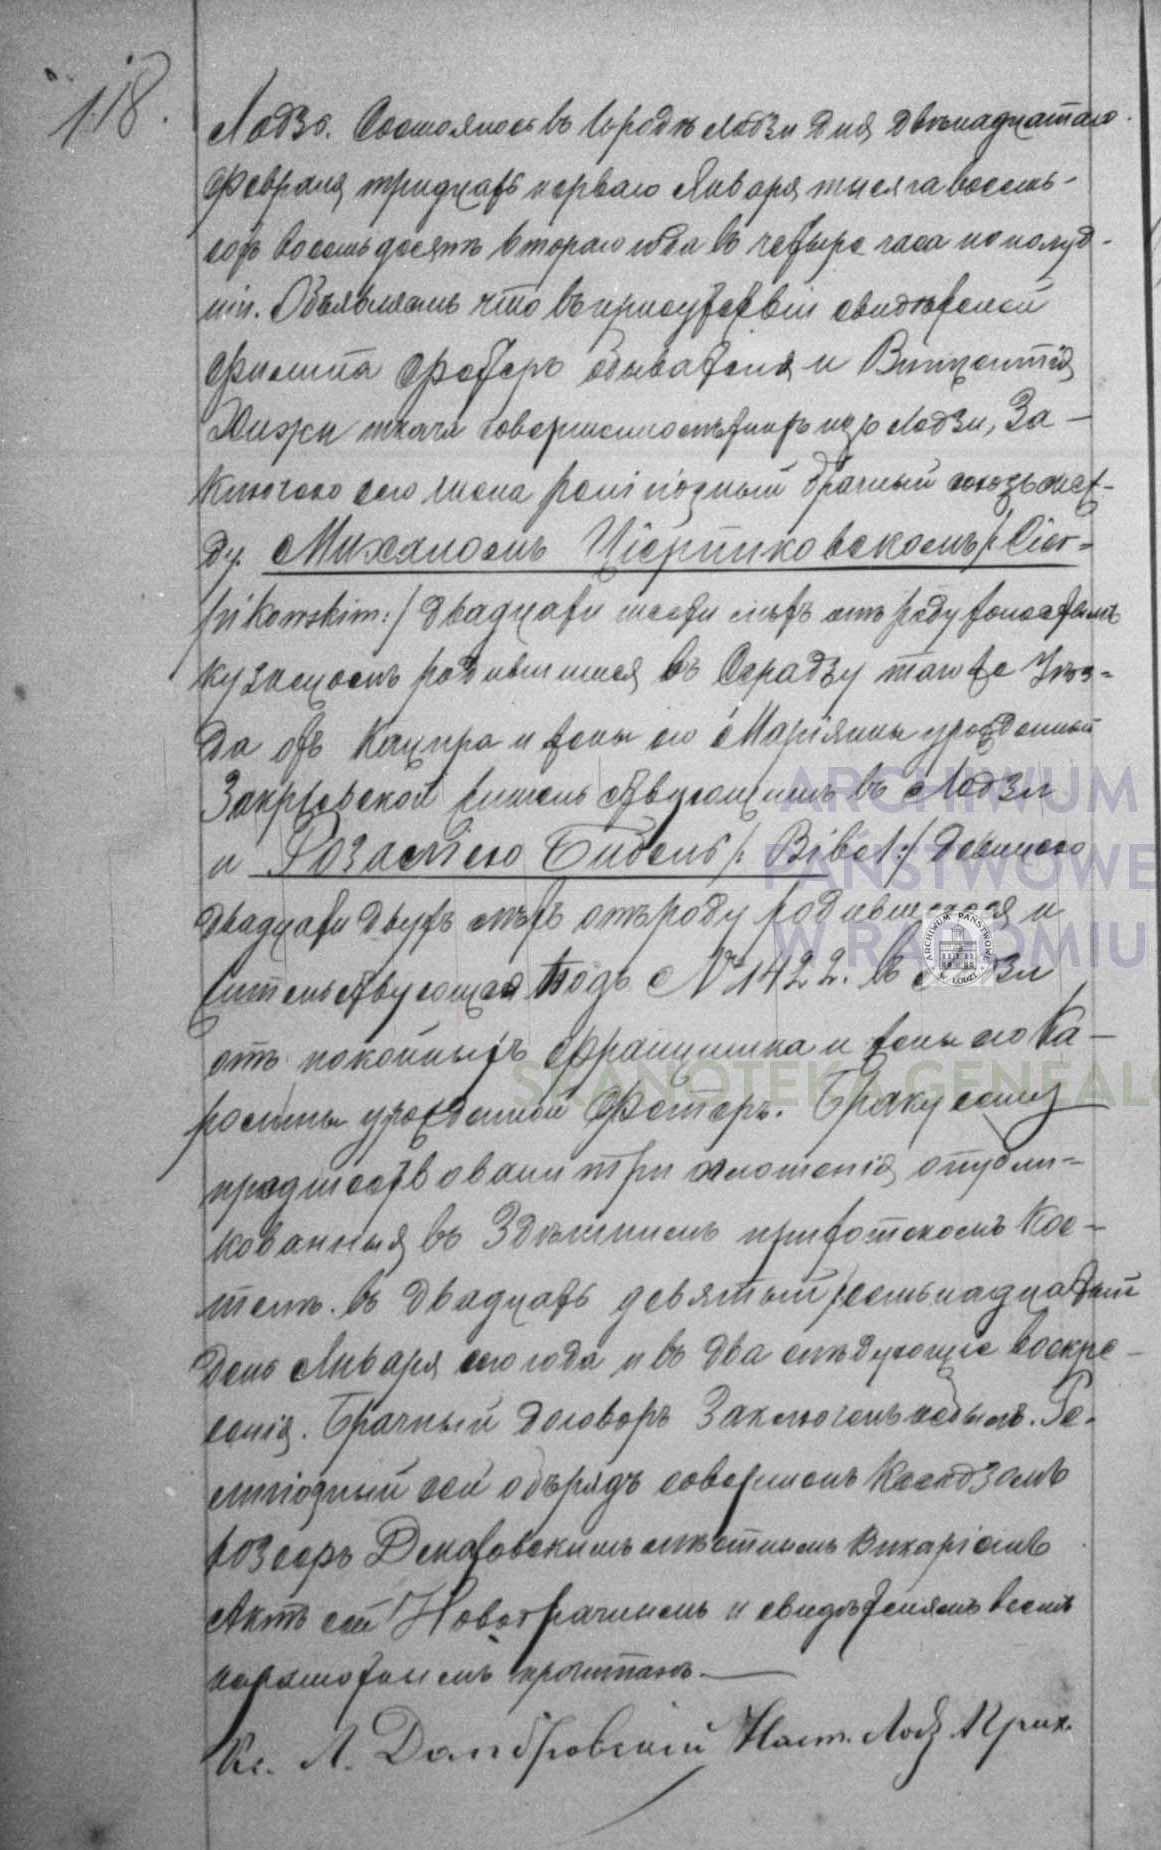 118.
Лодзь. Состоялось въ Городѣ Лодзи дня двѣнадцатаго
Февраля, тридцать перваго Января тысяча восемь-
сотъ восемьдесятъ втораго года въ четыре часа по полуд-
ни. Объявляемъ что въ присутствіи свидѣтелей
Филипа Фетеръ обывателя и Винцентія
ткача совершеннолѣтнихъ изъ Лодзи, За-
ключенъ сего числа религіозный брачный союзъ меж-
ду. Михаломъ Цісрпиковскомъ /: Cier-
pikowskim: / двадцати шести лѣтъ отъ роду холостымъ
кузнецомъ родившимся въ Серадзу того же Уѣз-
да отъ Кацпра и жены его Маріянны урожденной
Закржевской жительствующимъ въ Лодзи
и Розаліею Бибель /: Bibel: / девицею
двадцати двухъ лѣтъ отъ роду родившеюся и
жительствующая подъ № 1422. въ Лодзи
отъ покойныхъ Францишка и жены его Ка-
ролины урожденной Фетеръ. Браку сему
предшествовали три оглошенія, опубли-
кованныя въ Здѣшнемъ приходскомъ Кос-
телѣ. въ двадцать девятый /семьнадцатый
день Января сего года и въ два слѣдующіе воскре-
сенія. Брачный договоръ Заключенъ не былъ. Ре-
лигіозный сей обрядъ совершенъ Ксендзомъ
мѣстнымъ Викаріемъ
Актъ сей Новобрачнымъ и свидѣтелямъ всемъ
неграмотнымъ прочитанъ.
Кс. Л. Домбровскій Наст. Лодз. Прих.
ARCHIWUM
PAŃSTWOWE
W RADOMIU
SKANOTEKA GENEALO
ARCHIWUM PAŃSTWOWE W ŁODZI